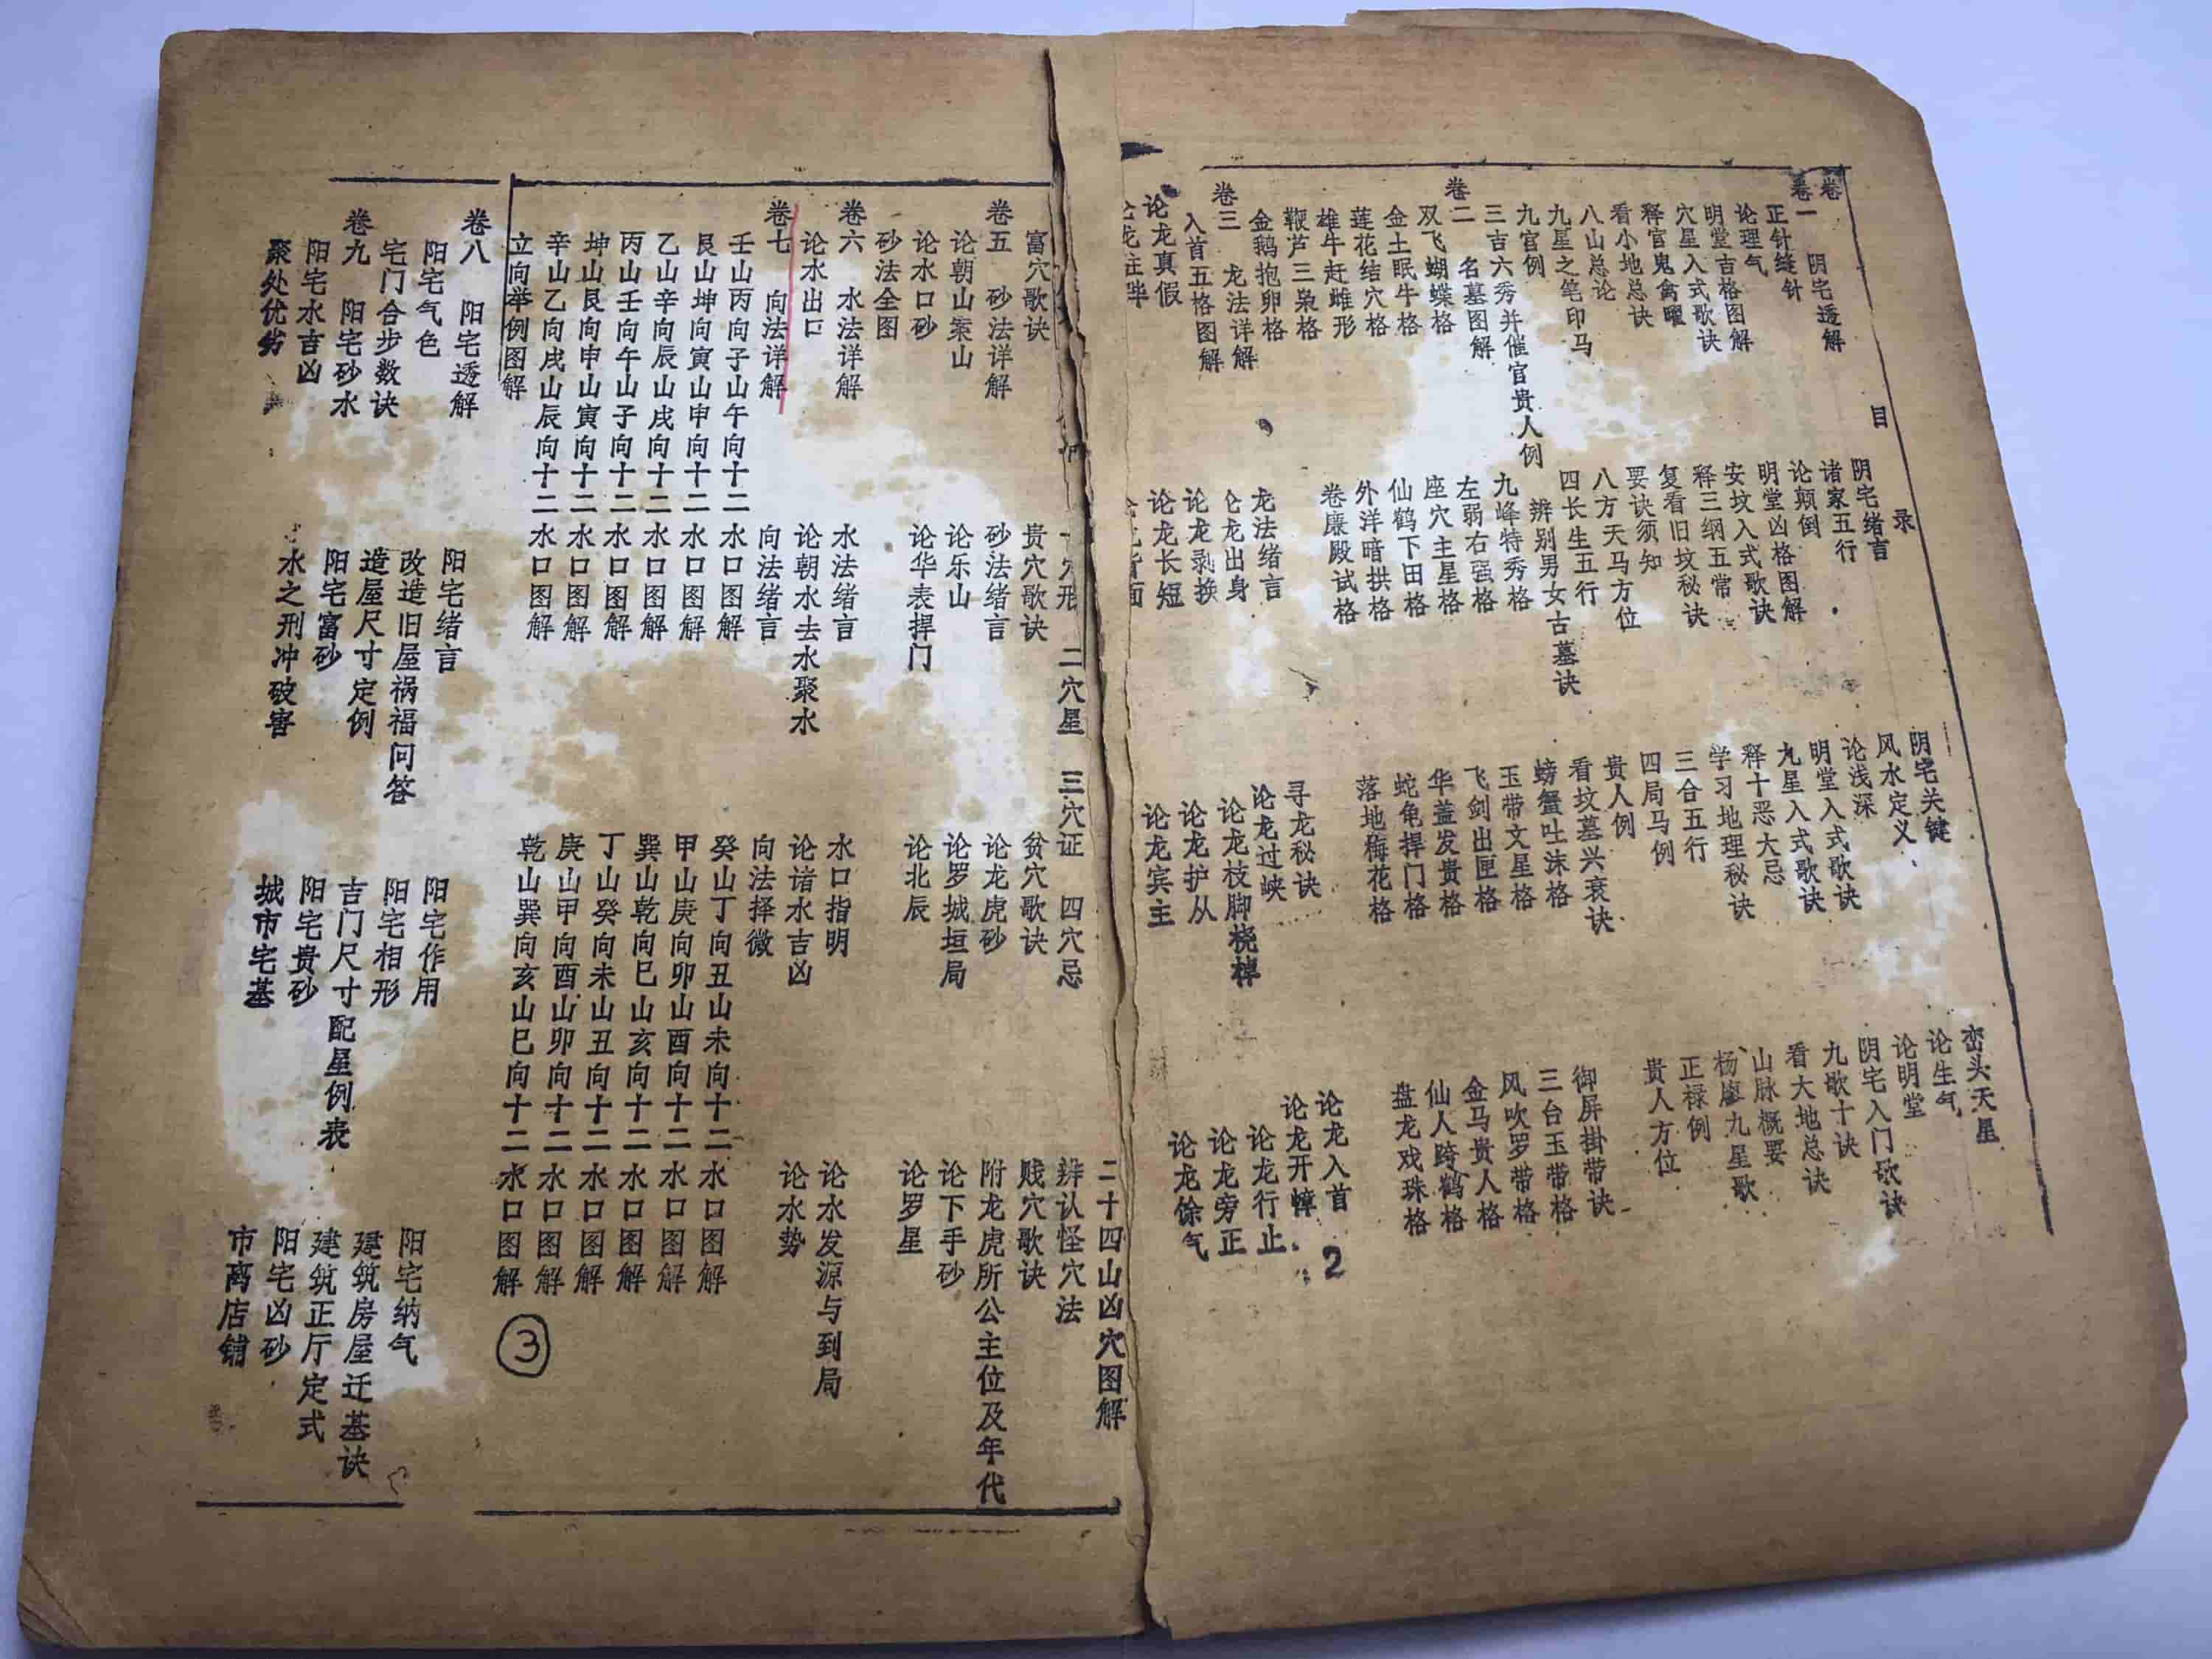 目录
卷一 阴宅透解 阴宅绪言 阴宅关键 峦头天星
正针缝针 诸家五行 风水定义 论生气
论理气 论颠倒 论浅深 论明堂
明堂吉格图解 明堂凶格图解 明堂入式歌诀 阴宅入门歌诀
穴星入式歌诀 安坟入式歌诀 九星入式歌诀 九歌十诀
释官鬼禽曜 释三纲五常 释十恶大忌 看大地总诀
看小地总诀 复看旧坟秘诀 学习地理秘诀 山脉概要
八山总论 要诀须知 三合五行 杨廖九星歌
九星之笔印马 八方天马方位 四局马例 正禄例
九官例 四长生五行 贵人例 贵人方位
三吉六秀并催官贵人例 辨别男女古墓诀 看坟墓兴衰诀
卷二 名墓图解 九峰特秀格 螃蟹吐沫格 御屏掛带诀
双飞蝴蝶格 左弱右强格 玉带文星格 三台玉带格
金土眠牛格 座穴主星格 飞剑出匣格 风吹罗带格
莲花结穴格 仙鹤下田格 华盖发贵格 金马贵人格
雄牛赶雌形 外洋暗拱格 蛇龟捍门格 仙人跨鹤格
鞭芦三枭格 卷廉殿试格 落地梅花格 盘龙戏珠格
金鹅抱卵格
卷三 龙法详解 龙法绪言 寻龙秘诀 论龙入首
入首五格图解 论龙出身 论龙过峡 论龙开幛
论龙真假 论龙剥换 论龙枝脚桡棹 论龙行止
论龙长短 论龙护从 论龙旁正
论龙宾主 论龙馀气
2
二十四山凶穴图解
二穴星 三穴证 四穴忌 辨认怪穴法
富穴歌诀 贵穴歌诀 贫穴歌诀 贱穴歌诀
卷五 砂法详解 砂法绪言 论龙虎砂 附龙虎所公主位及年代
论朝山案山 论乐山 论罗城垣局 论下手砂
论水口砂 论华表捍门 论北辰 论罗星
砂法全图
卷六 水法详解 水法绪言 水口指明 论水发源与到局
论水出口 论朝水去水聚水 论诸水吉凶 论水势
卷七 向法详解 向法绪言 向法择微
壬山丙向子山午向十二水口图解 癸山丁向丑山未向十二水口图解
艮山坤向寅山申向十二水口图解 甲山庚向卯山酉向十二水口图解
乙山辛向辰山戌向十二水口图解 巽山乾向巳山亥向十二水口图解
丙山壬向午山子向十二水口图解 丁山癸向未山丑向十二水口图解
坤山艮向申山寅向十二水口图解 庚山甲向酉山卯向十二水口图解
辛山乙向戌山辰向十二水口图解 乾山巽向亥山巳向十二水口图解
立向举例图解
3
卷八 阳宅透解 阳宅绪言 阳宅作用 阳宅纳气
阳宅气色 改造旧屋祸福问答 阳宅相形 建筑房屋迁基诀
宅门合步数诀 造屋尺寸定例 吉门尺寸配星例表 建筑正厅定式
卷九 阳宅砂水 阳宅富砂 阳宅贵砂 阳宅凶砂
阳宅水吉凶 水之刑冲破害 城市宅基 市离店铺
聚处优劣